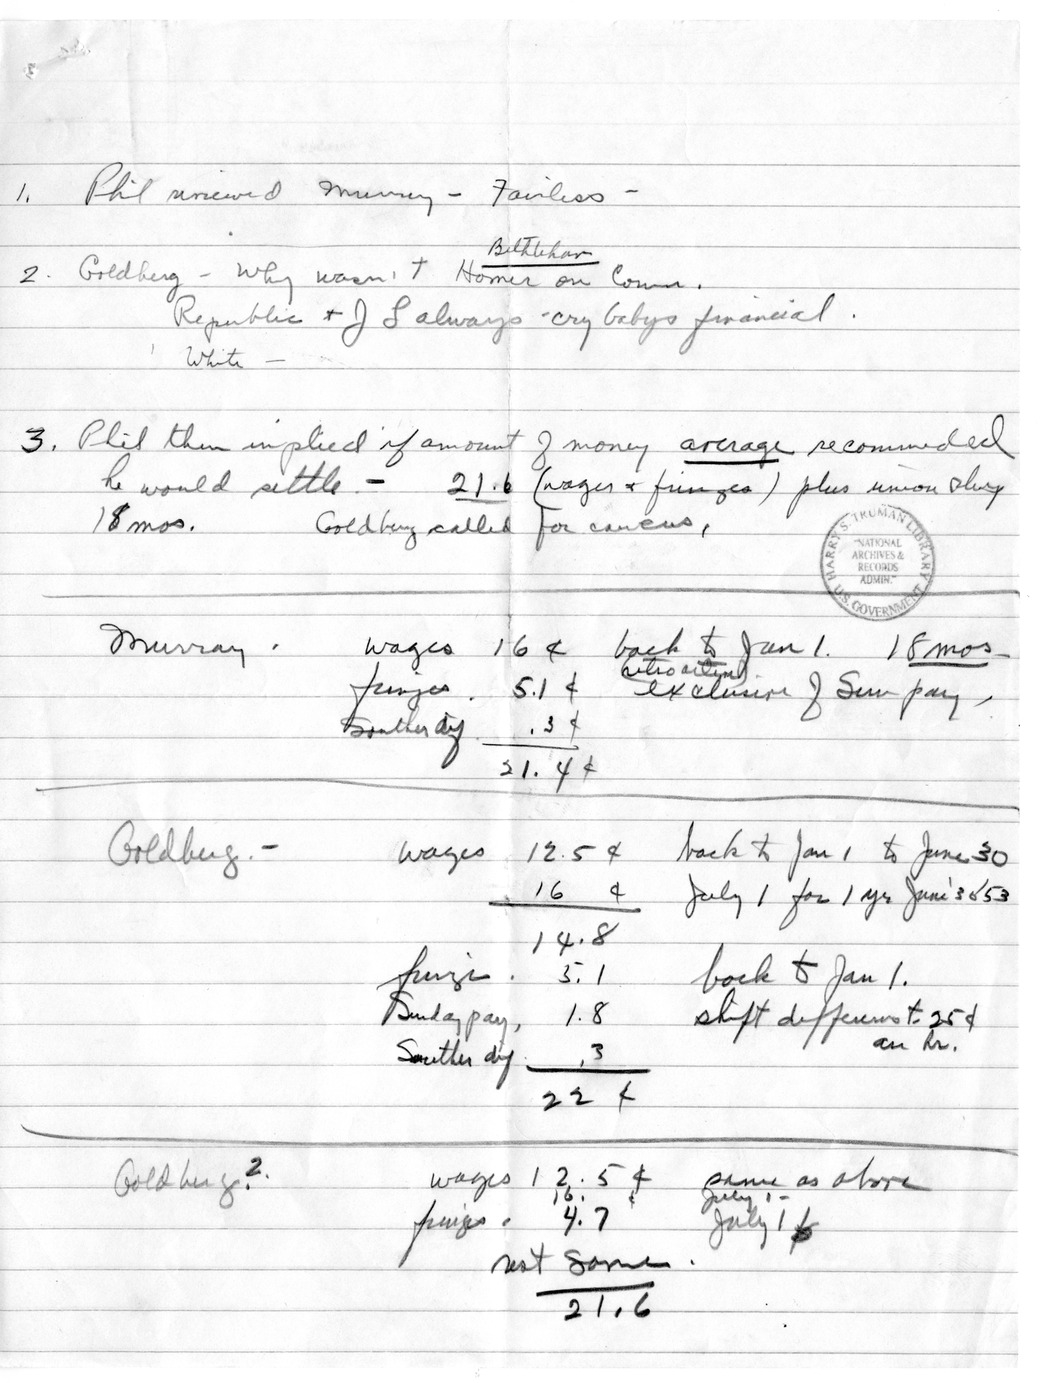 1. Phil reviewed Murray - Fairless -
Bethlehem
2. Goldberg - Why wasn't Homer on Comm.
Republic + J L always - cry babys financial.
White -
3. Phil then implied if amount of money average recommended
he would settle - 21.6 (wages + fringes) plus union shop
18 mos. Goldberg called for caucus,
HARRY S. TRUMAN LIBRARY
"NATIONAL
ARCHIVES &
RECORDS
ADMIN."
U.S. GOVERNMENT
Murray. wages 16 ¢ back to Jan 1. 18 mos
retroactive
fringes. 5.1 ¢ exclusive of Sun pay,
Souther dif .3 ¢
21.4 ¢
Goldberg. - wages 12.5 ¢ back to Jan 1 to June 30
16 ¢ July 1 for 1 yr June 30 53
14.8
fringe. 5.1 back to Jan 1.
Sunday pay, 1.8 shift different. 25¢
an hr.
Souther dif .3
22 ¢
Goldberg 2. wages 12.5 ¢ same as above
16. ¢ July 1 -
fringes. 4.7 July 1
rest same.
21.6